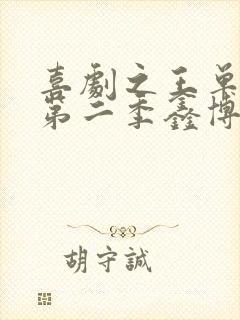 喜劇之王單
第二季鑫博
胡守誠